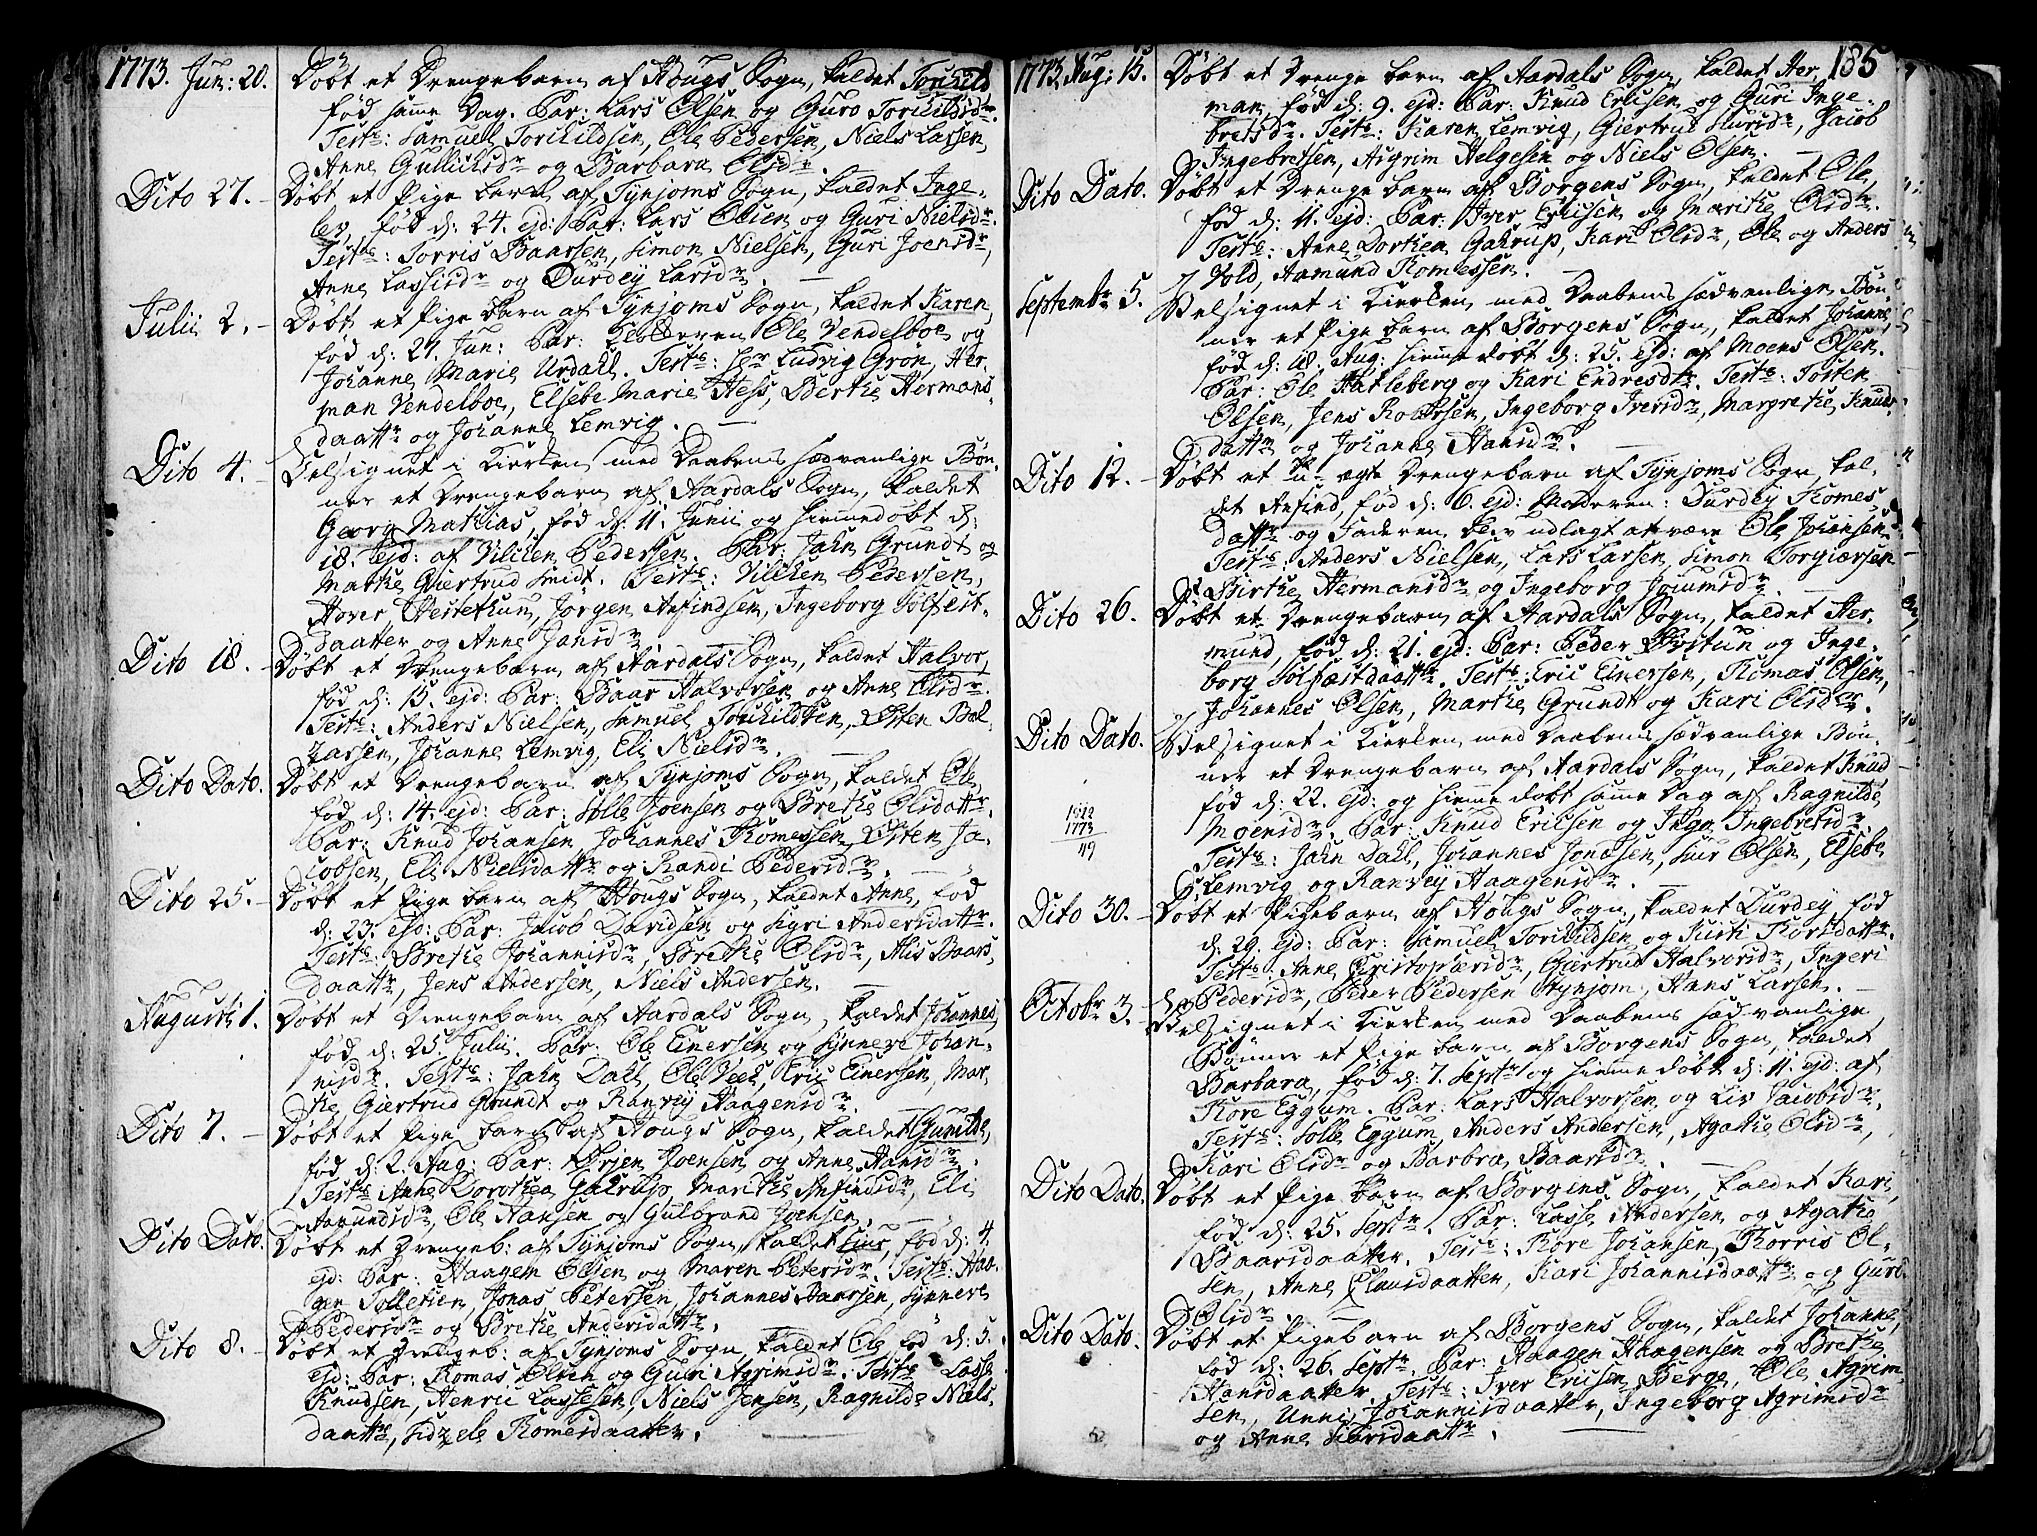 1773. Jun: 20. Döbt et Drengebarn af Hougs Sogn, kaldet Torkild
föd samme Dag. Par: Lars Olsen og Guro Torkildsdr.
Test: Samuel Torkildsen, Ole Pedersen, Niels Larsen,
Anne Gullichsdr og Barbara Olsdr.
Dito 27. Döbt et Pige barn af Tynjoms Sogn, kaldet Inge-
lev, föd d: 24. ejd: Par: Lars Olsen og Guri Nielsdr.
Testes: Torris Baarsen, Simon Nielsen, Guri Joensdr,
Anne Lassisdr og Durdey Larsdr.
Julii 2. Döbt et Pige barn af Tynjoms Sogn, kaldet Karen,
föd d: 21. Jun: Par: Ole Vendelboe og
Johanne Marie Urdahl. Testes: Hr Ludvig Grön, Her-
man Vendelboe, Elsebe Marie Hess, Berthe Hermans-
daattr og Johanne Lemvig.
Dito 4. Velsignet i Kierken med Daabens sædvanlige Bön-
ner et Drengebarn af Aardals Sogn, kaldet
Georg Mathias, föd d: 11. Junii og hiemmedöbt d:
18. ejd: af Vilchen Pedersen. Par: Jahn Grundt og
Marthe Giertrud Smidt. Testes: Vilchen Pedersen,
Hover Vestethun, Jörgen Anfindsen, Ingeborg Solfest-
daatter og Anne Jansdr.
Dito 18. Döbt et Drengebarn af Aardals Sogn, kaldet Halvor,
föd d: 15. ejd: Par: Baar Halvorsen og Anne Olsdr.
Testes: Anders Nielsen, Samuel Torkildsen, Østen Bal-
zarsen, Johanne Lemvig, Eli Nielsdr.
Dito Dato. Döbt et Drengebarn af Tynjoms Sogn, kaldet Ole,
föd d: 14. ejd: Par: Solle Joensen og Brethe Olsdattr.
Par: Knud Johansen, Johannes Thomessen, Østen Ja-
cobsen, Eli Nielsdattr og Randi Pedersdr.
Dito 25. Döbt et Pige barn af Hougs Sogn, kaldet Anne, föd
d: 23. ejd: Par: Jacob Davidsen og Kari Andersdattr.
Testes: Brethe Johannisdr, Brethe Olsdr, Alis Baars-
daattr, Jens Andersen, Niels Andersen.
Augusti 1. Döbt et Drengebarn af Aardals Sogn, kaldet Johannes,
föd d: 25 Julii. Par: Ole Einersen og Synneve Johan-
nisdr. Testes: Jahn Dahl, Ole Veed, Eric Einersen, Mar-
the Giertrud Grundt og Ranvey Haagensdr.
Dito 7. Döbt et Pige barn af Hougs Sogn, kaldet Gunilde,
föd d: 2. Aug: Par: Ørjen Joensen og Anne Hansdr.
Testes Anne Dorothea Galrup, Marithe Anfindsdr, Eli
Aamundsdr, Ole Hansen og Gulbrand Joensen.
Dito Dato. Döbt et Drengeb: af Tynjoms Sogn, kaldet Siur, föd d: 4.
ejd: Par: Haagen Olsen og Maren Petersdr. Testes: Haa-
gen Tollefsen, Jonas Petersen, Johannes Baarsen, Synneve
Pedersdr og Brethe Andersdattr.
Dito 8. Döbt et Drengeb: af Tynjoms Sogn, kaldet Ole, föd d: 5.
ejd: Par: Thomas Olsen og Guri Agrimsdr. Testes: Lasse
Knudsen, Henric Lassesen, Niels Jensen, Ragnilde Niels-
daattr, Sidzele Thomesdaatter.
185
1773. Aug: 15. Döbt et Drenge barn af Aardals Sogn, kaldet Her-
man, föd d: 9. ejd: Par: Knud Ericsen og Guri Inge-
bretsdr. Testes: Karen Lemvig, Giertrud Siursdr, Jacob
Ingebretsen, Asgrim Helgesen og Niels Olsen.
Dito Dato. Döbt et Drenge barn af Borgens Sogn, kaldet Ole,
föd d: 11. ejd: Par: Iver Ericsen og Marithe Olsdtr.
Testes: Anne Dorthea Galrup, Kari Olsdr, Ole og Anders
Vold, Aamund Thomessen.
Septembr 5. Velsignet i Kierken med Daabens sædvanlige Bön-
ner et Pige barn af Borgens Sogn, kaldet Johanne,
föd d: 18. Aug: hiemme döbt d: 25. ejd: af Moens Olsen.
Par: Ole Hatleberg og Kari Endresdtr. Testes: Torsten
Olsen, Jens Robersen, Ingeborg Iversdr, Margrethe Knuds-
dattr og Johanne Hansdr.
Dito 12. Döbt et U-ægte Drengebarn af Tynjoms Sogn, kal-
det Anfind, föd d: 6. ejd: Moderen: Durdey Thomes-
dattr og Faderen blev udlagt at være Ole Johansen.
Testes: Anders Nielsen, Lars Larsen, Simon Torgiersen
Birthe Hermansdr og Ingeborg Joensdr.
Dito 26. Döbt et Drengebarn af Aardals Sogn, kaldet Her-
mund, föd d: 21. ejd: Par: Peder Østun og Inge-
borg Solfæstdaattr. Testes: Eric Einersen, Thomas Olsen,
Johannes Olsen, Marthe Grundt og Kari Olsdr.
Dito Dato. Velsignet i Kierken med Daabens sædvanlige Bön-
ner et Drengebarn af Aardals Sogn, kaldet Knud
föd d: 22. ejd: og hiemme döbt samme Dag af Ragnilde
Moensdr. Par: Knud Ericsen og Inga Ingebretsdr.
Testes: Jahn Dahl, Johannes Jonasen, Siur Olsen, Elsebe
Lemvig og Ranvey Haagensdr.
1822
1773
49
Dito 30. Döbt et Pigebarn af Hougs Sogn, kaldet Durdey, föd
d: 29. ejd: Par: Samuel Torkildsen og Kirsti Thorsdattr.
Testes: Anne Christophersdr, Giertrud Halvorsdr, Ingeri
Pedersdr, Peder Pedersen Tynjom, Hans Larsen.
Octobr 3. Velsignet i Kierken med Daabens sædvanlige
Bönner et Pige barn af Borgens Sogn, kaldet
Barbara, föd d: 7. Septr og hiemme döbt d: 11. ejd: af
Thore Eggum. Par: Lars Halvorsen og Liv Jacobsdr.
Testes: Solle Eggum, Anders Andersen, Agathe Olsdr,
Kari Olsdr og Barbra Baarsdr.
Dito Dato. Döbt et Pige barn af Borgens Sogn, kaldet Kari,
föd d: 25. Septr. Par: Lasse Andersen og Agathe
Baarsdaatter. Testes: Thore Johansen, Thorris Ol-
sen, Anne Clausdaatter, Kari Johannisdaattr og Guri
Olsdr.
Dito Dato. Döbt et Pigebarn af Borgens Sogn, kaldet Johanne,
föd d: 26. Septr: Par: Haagen Haagensen og Brethe
Hansdaatter. Testes: Iver Ericsen Berge, Ole Agrim-
sen, Unni Johannisdaatter, Ingeborg Agrimsdr
og Anne Larsdaattr.